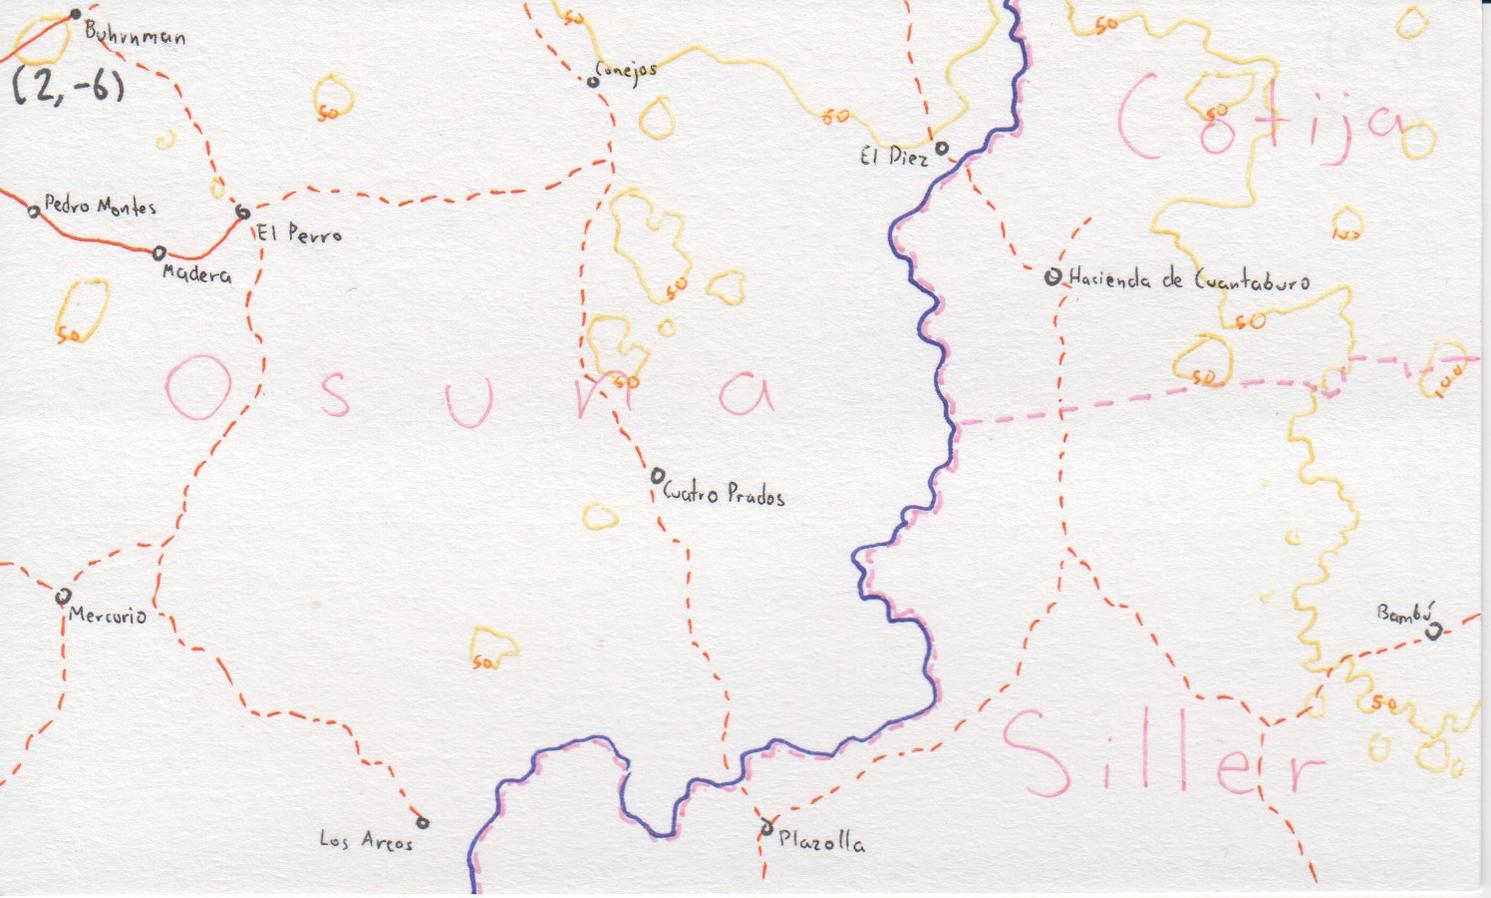 50
50
Buhrnman
Conejos
(2,-6)
50
60
50
Cotija
El Diez
Pedro Montes
El Perro
100
Madera
50
Hacienda de Cuantaburo
50
50
50
50
100
Osuna
Cuatro Prados
Mercurio
Bambú
50
50
Siller
Los Arcos
Plazolla